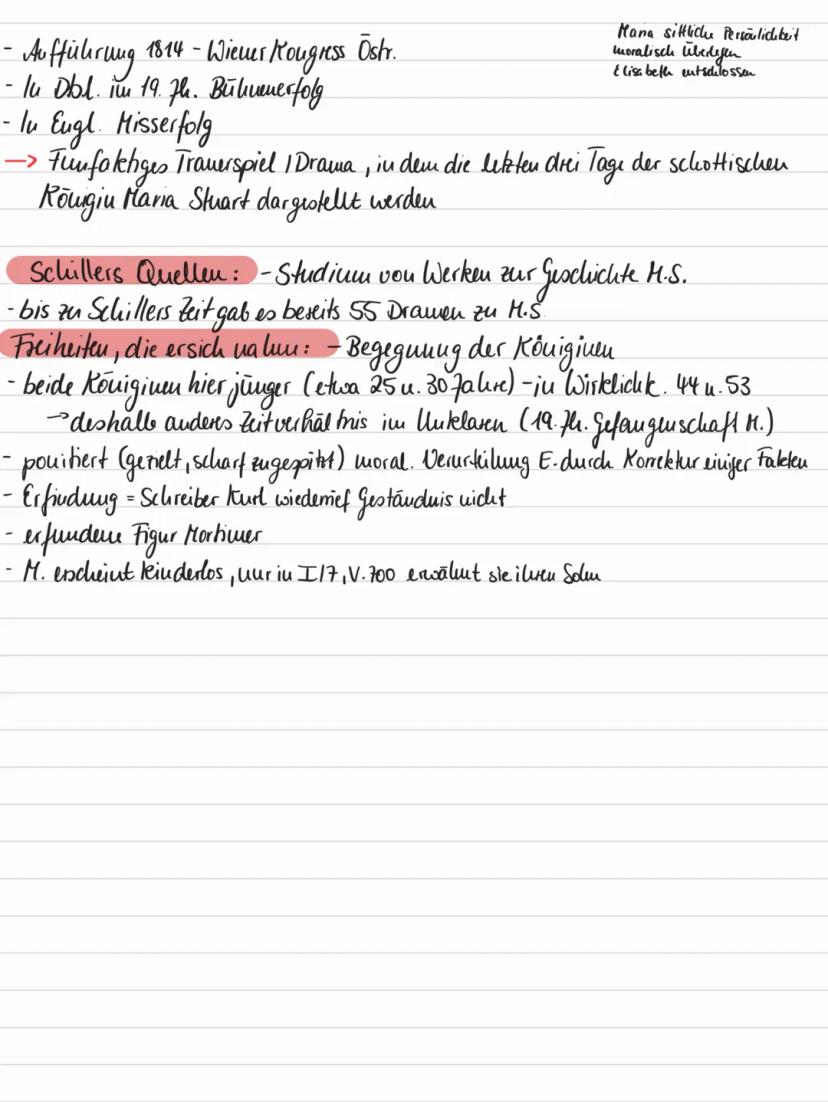 Maria sittliche Persönlichkeit
moralisch Überlegen
Elisabeth entschlossen
- Aufführung 1814 - Wiener Kongress Östr.
- In Dbl. im 19. Jh. Bühnenerfolg
- In Engl. Misserfolg
→ Fünfaktiges Trauerspiel / Drama, in dem die letzten drei Tage der schottischen
Königin Maria Stuart dargestellt werden
Schillers Quellen: - Studium von Werken zur Geschichte M.S.
- bis zu Schillers Zeit gab es bereits 55 Dramen zu M.S
Freiheiten, die er sich nahm: - Begegnung der Königinen
- beide Königinen hier jünger (etwa 25 u. 30 Jahre) - in Wirklichk. 44 u. 53
→ deshalb anderes Zeitverhältnis im Unklaren (19. Jh. Gefangenschaft M.)
- pointiert (gezielt, scharf zugespitzt) moral. Verurteilung E. durch Korrektur einiger Fakten
- Erfindung = Schreiber Kurl wiederrief Geständnis nicht
- erfundene Figur Mortimer
- M. erscheint kinderlos, nur in I/7, V. 700 erwähnt sie ihren Sohn